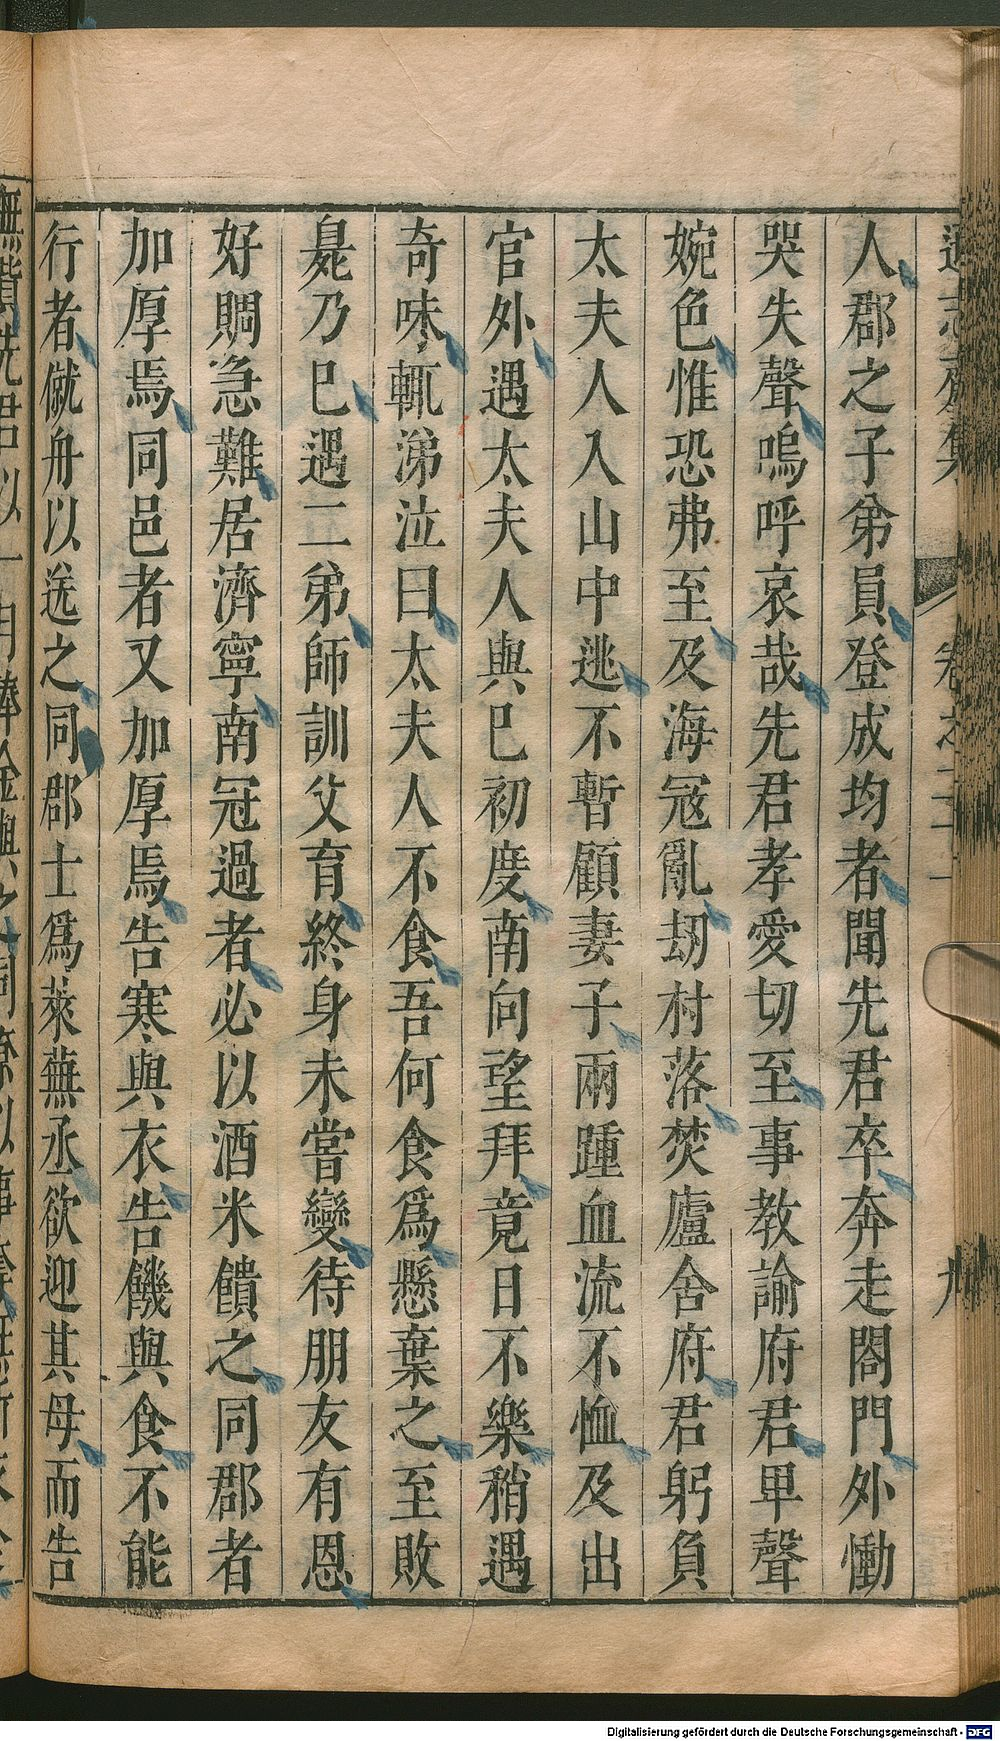 人郡之子弟員登成均者聞先君卒奔走閤門外慟
哭失聲嗚呼哀哉先君孝愛切至事教諭府君畢聲
婉色惟恐弗至及海寇亂刼村落焚廬舍府君躬負
太夫人入山中逃不暫顧妻子兩踵血流不恤及出
官外遇太夫人與巳初度南向望拜竟日不樂稍遇
奇味輒涕泣曰太夫人不食吾何食爲懸棄之至敗
㲋乃巳遇二弟師訓父育終身未嘗變待朋友有恩
好賙急難居濟寧南冠過者必以酒米饋之同郡者
加厚焉同邑者又加厚焉告寒與衣告饑與食不能
行者僦舟以送之同郡士爲萊蕪丞欲迎其母而告
Digitalisierung gefördert durch die Deutsche Forschungsgemeinschaft - DFG